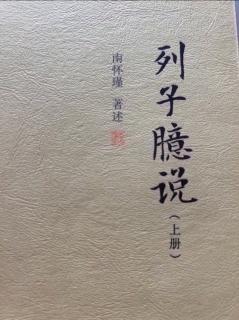 列子臆说
（上册）
南怀瑾 著述